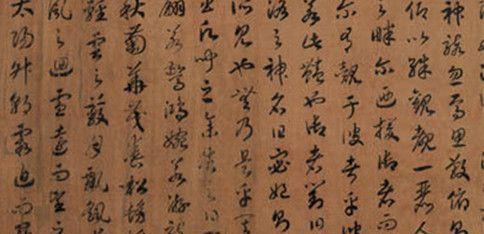 神駭忽焉思散俯則
仰以殊觀覩一麗人
之畔尔迺援御者而
尔有覿于彼者乎彼
若此豔也御者對曰
洛之神名曰宓妃則
所見也無乃是乎
之余告之曰
翩若驚鴻婉若游
秋菊華茂春松髣
輕雲之蔽月飄飖
風之迴雪遠而望
太陽升朝霞迫而